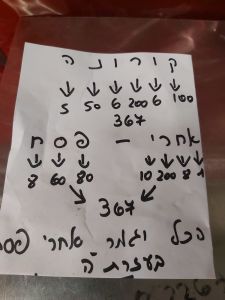 קורונה
↓ ↓ ↓ ↓ ↓ ↓
5 50 6 200 6 100
367
אחרי - פסח
↓ ↓ ↓ ↓ ↓ ↓ ↓
8 60 80 10 200 8 1
367
הכל יגמר אחרי פסח
בעזרת ה'